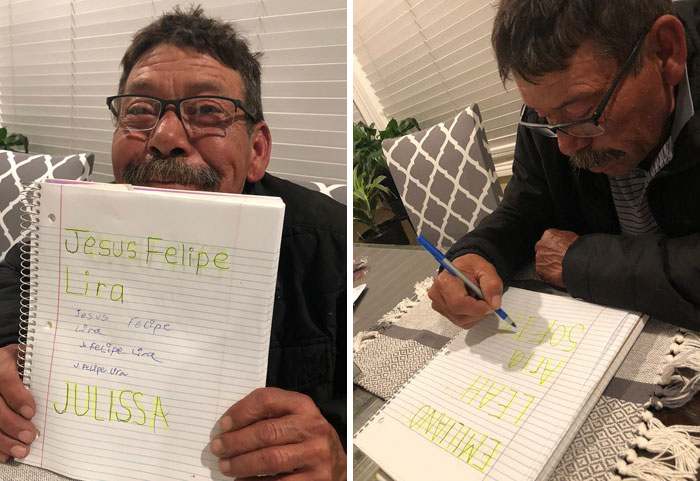 Jesus Felipe
Lira
Jesus Felipe
Lira
J. Felipe Lira
J. Felipe Lira
JULISSA
SOFI
Aria
LEAH
EMILIANO